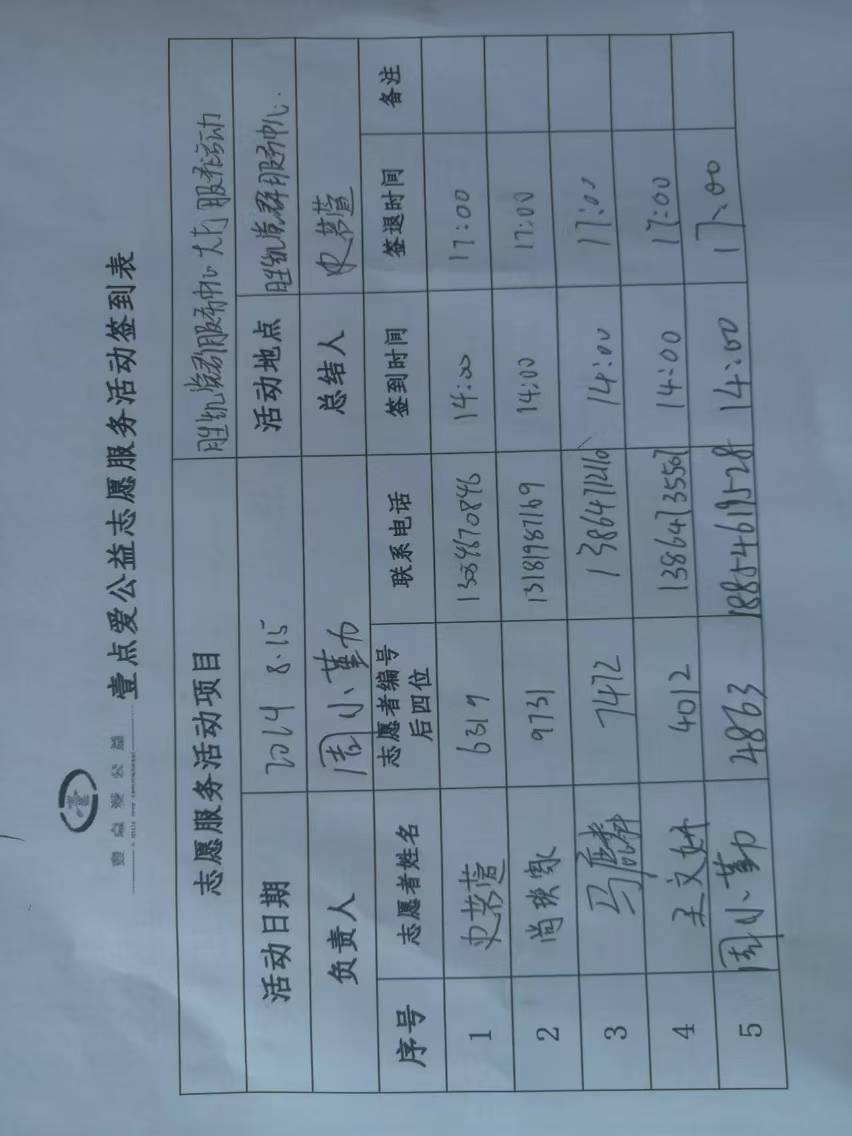 壹点爱公益
壹点爱公益志愿服务活动签到表
志愿服务活动项目 胜凯党群服务中心 服务活动
活动日期 2024 8.15 活动地点 胜凯党群服务中心.
负责人 周小勤 总结人 史若萱
序号 志愿者姓名 志愿者编号后四位 联系电话 签到时间 签退时间 备注
1 史若萱 6319 14:00 17:00
2 尚 9731 13181987169 14:00 17:00
3 马 7472 14:00 17:00
4 王文 4012 13864735507 14:00 17:00
5 周小勤 4863 18854619528 14:00 17:00